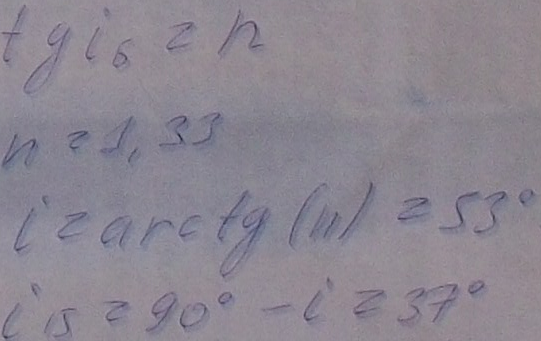 tg iб = n
n = 1,33
i = arctg (n) = 53°
iБ = 90° - i = 37°